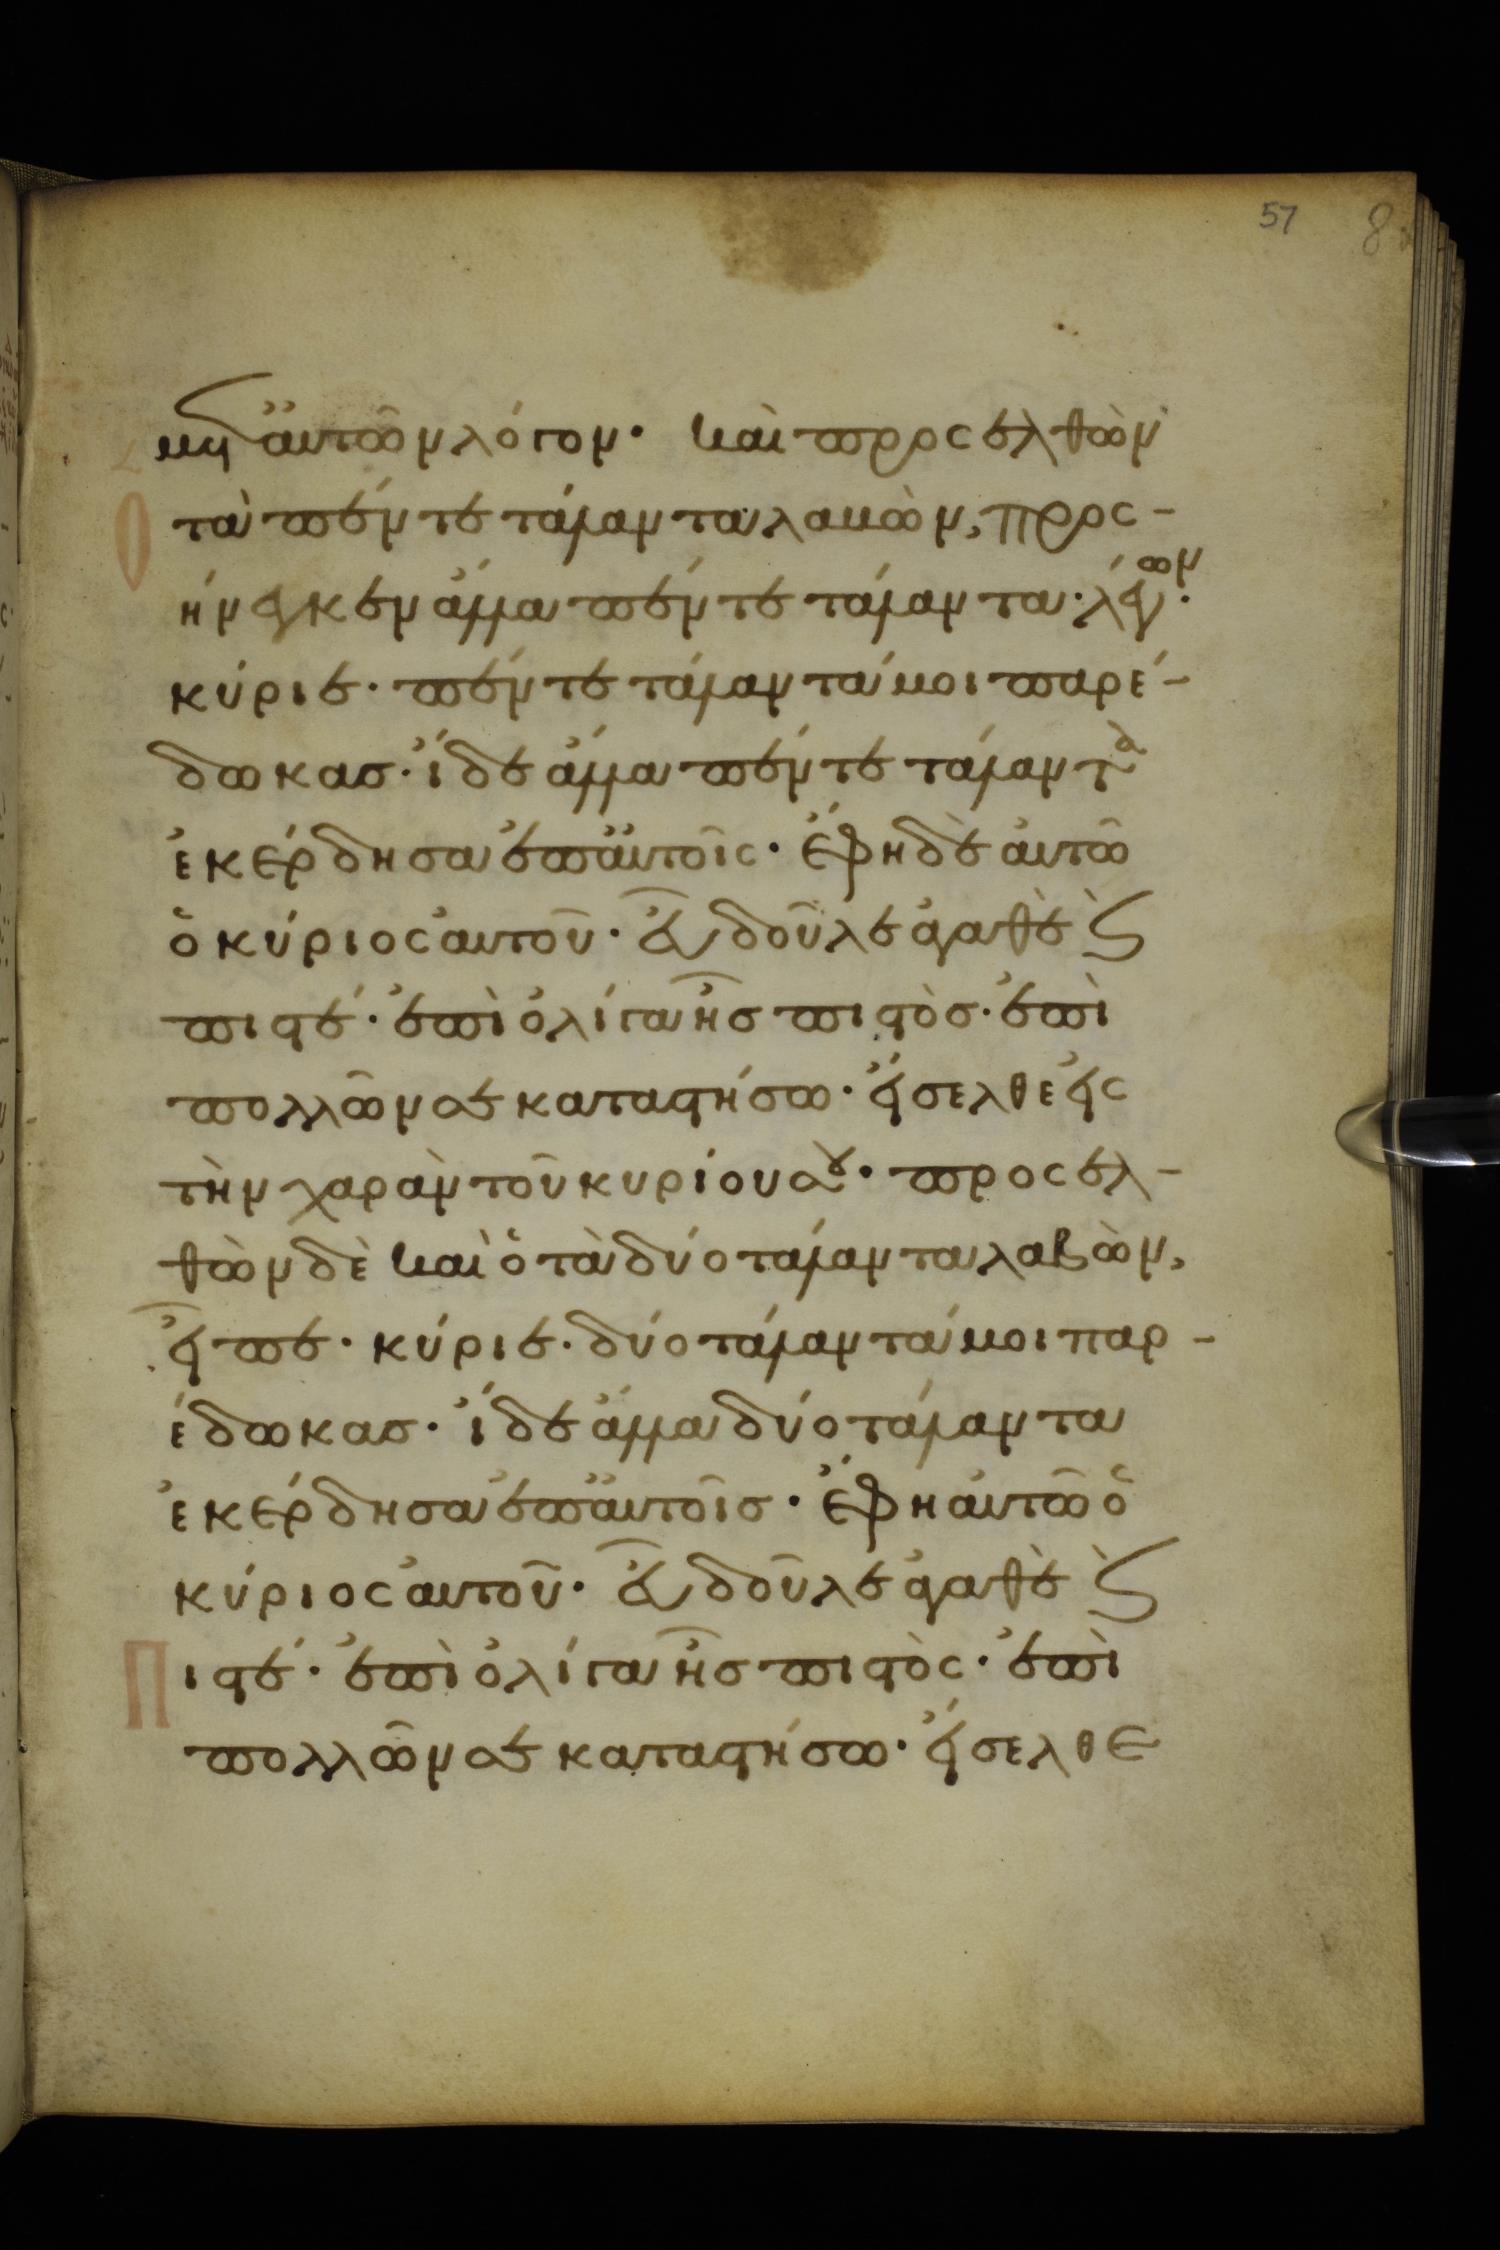 57 8
μετ αὐτῶν λόγον· καὶ προσελθὼν
Ὁ τὰ πέντε τάλαντα λαβὼν, προσ-
ήνεγκεν ἄλλα πέντε τάλαντα· λέγων·
κύριε· πέντε τάλαντά μοι παρέ-
δωκας· ἴδε ἄλλα πέντε τάλαντα
ἐκέρδησα ἐπ αὐτοῖς· ἔφη δὲ αὐτῶ
ὁ κύριος αὐτοῦ· εὖ δοῦλε ἀγαθὲ ϗ
πιστέ· ἐπὶ ὀλίγα ἦς πιστὸς· ἐπὶ
πολλῶν σε καταστήσω· εἴσελθε εἰς
τὴν χαρὰν τοῦ κυρίου σου· προσελ-
θὼν δὲ καὶ ὁ τὰ δύο τάλαντα λαβὼν,
εἶπε· κύριε· δύο τάλαντά μοι παρ-
έδωκας· ἴδε ἄλλα δύο τάλαντα
ἐκέρδησα ἐπ αὐτοῖς· ἔφη αὐτῶ ὁ
κύριος αὐτοῦ· εὖ δοῦλε ἀγαθὲ ϗ
Πιστέ· ἐπὶ ὀλίγα ἦς πιστὸς· ἐπὶ
πολλῶν σε καταστήσω· εἴσελθε